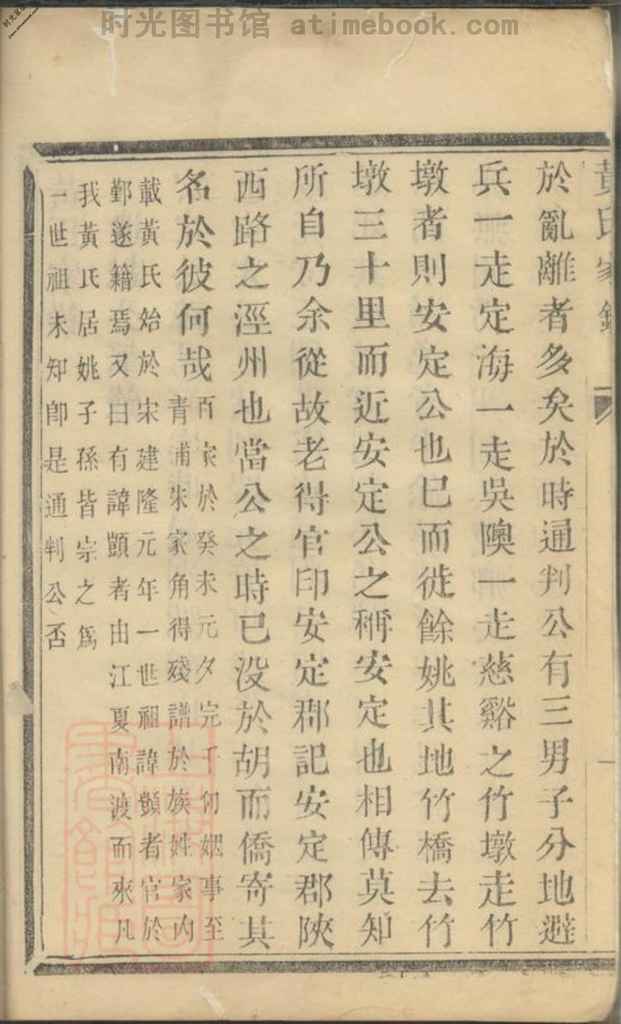 时光图书馆 atimebook.com
黃氏家錄
於亂離者多矣於時通判公有三男子分地避
兵一走定海一走吳隩一走慈谿之竹墩走竹
墩者則安定公也已而徙餘姚其地竹橋去竹
墩三十里而近安定公之稱安定也相傳莫知
所自乃余從故老得官印安定郡記安定郡陝
西路之涇州也當公之時已没於胡而僑寄其
名於彼何哉
百家於癸未元夕完子姻事至
青浦朱家角得殘譜於族姓家内
載黃氏始於宋建隆元年一世祖諱顗者官於
鄞遂籍焉又曰有諱顗者由江夏南渡而來凡
我黃氏居姚子孫皆宗之爲
一世祖未知卽是通判公否